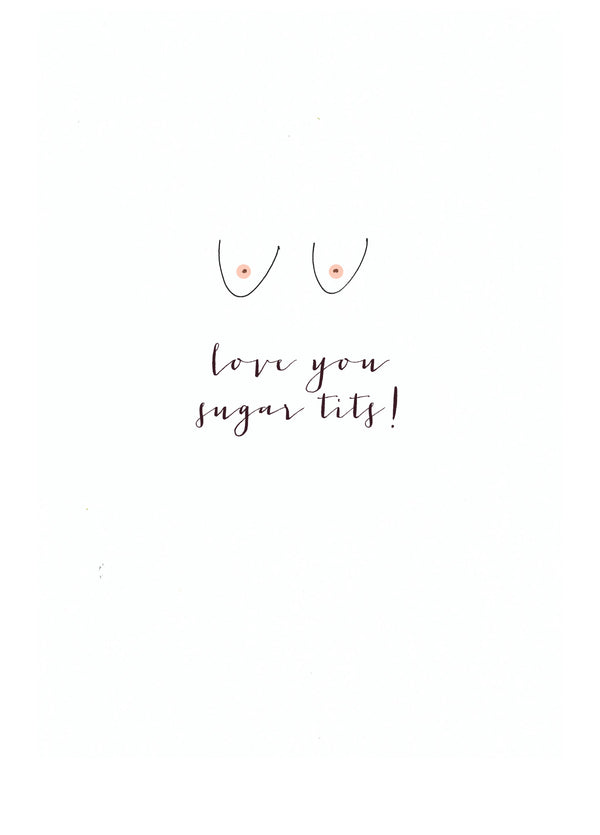 love you
sugar tits!